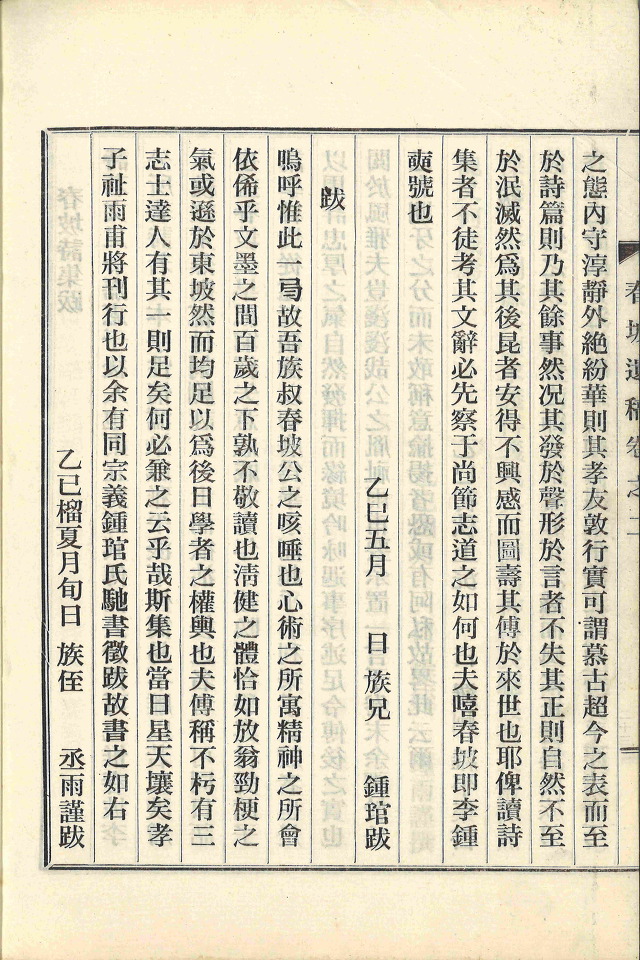 春坡遺稿卷之二
之態內守淳靜外絶紛華則其孝友敦行實可謂慕古超今之表而至
於詩篇則乃其餘事然况其發於聲形於言者不失其正則自然不至
於泯滅然爲其後昆者安得不興感而圖壽其傳於來世也耶俾讀詩
集者不徒考其文辭必先察于尚節志道之如何也夫嘻春坡即李鍾
奭號也
乙巳五月 日 族兄 鍾琯跋
跋
嗚呼惟此一弓故吾族叔春坡公之咳唾也心術之所寓精神之所會
依俙乎文墨之間百歲之下孰不敬讀也淸健之體恰如放翁勁梗之
氣或遜於東坡然而均足以爲後日學者之權輿也夫傅稱不朽有三
志士達人有其一則足矣何必兼之云乎哉斯集也當日星天壤矣孝
子祉雨甫將刊行也以余有同宗義鍾琯氏馳書徵跋故書之如右
乙巳榴夏月旬日 族侄 丞雨謹跋